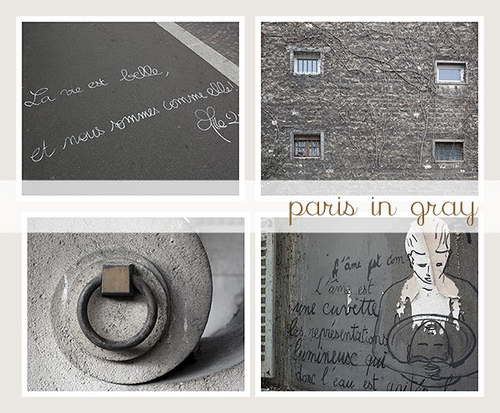 La vie est belle,
et nous sommes comme elle!
paris in gray
l'âme est com
L'âme est
une cuvette
les représentations
lumineuse qui
donc l'eau est